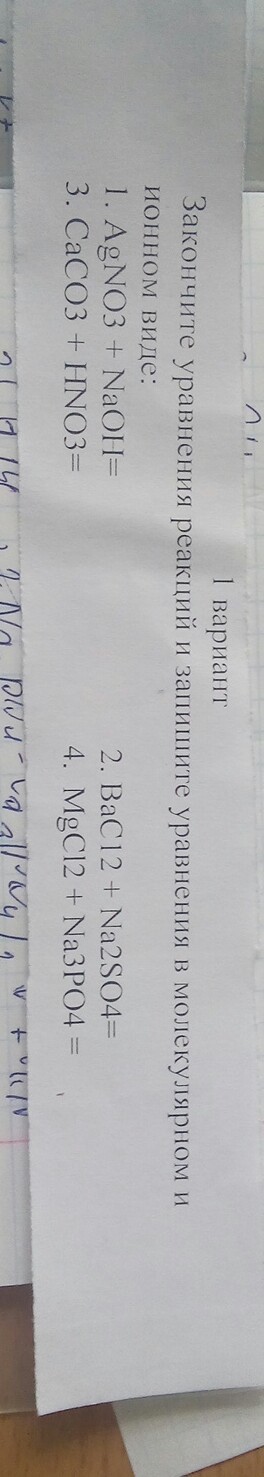 1 вариант
Закончите уравнения реакций и запишите уравнения в молекулярном и
ионном виде:
1. AgNO3 + NaOH= 2. BaC12 + Na2SO4=
3. CaCO3 + HNO3= 4. MgCl2 + Na3PO4 =